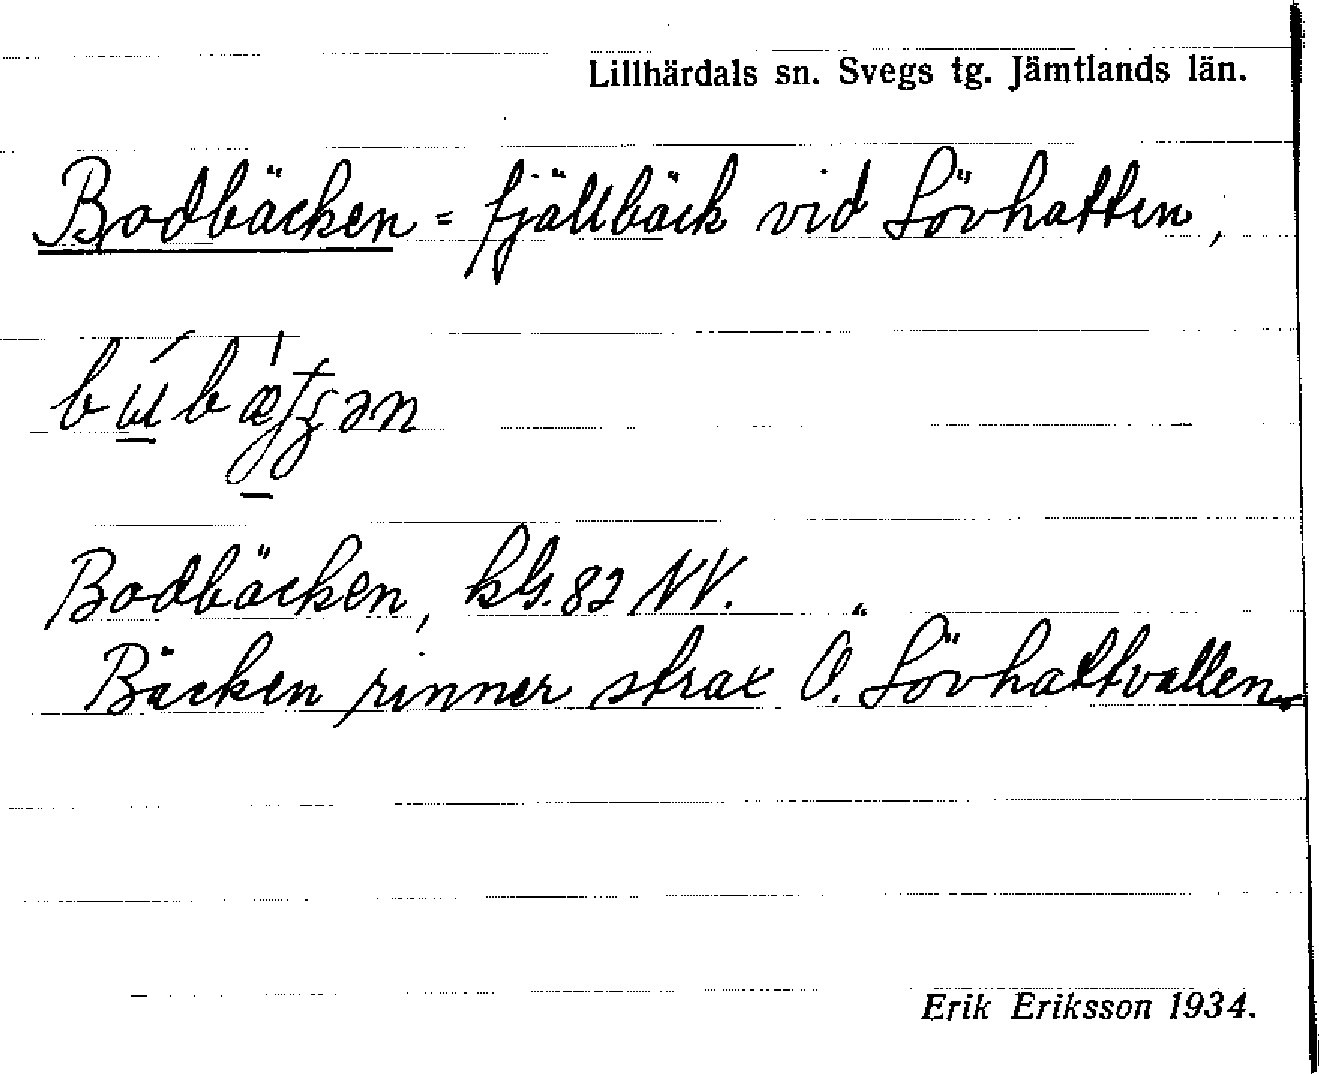 Lillhärdals sn. Svegs tg. Jämtlands län.
Bodbäcken = fjällbäck vid Lövhatten,
Bodbäcken, kbl. 82 NV.
Bäcken rinner strax Ö. Lövhattvallen.
Erik Eriksson 1934.